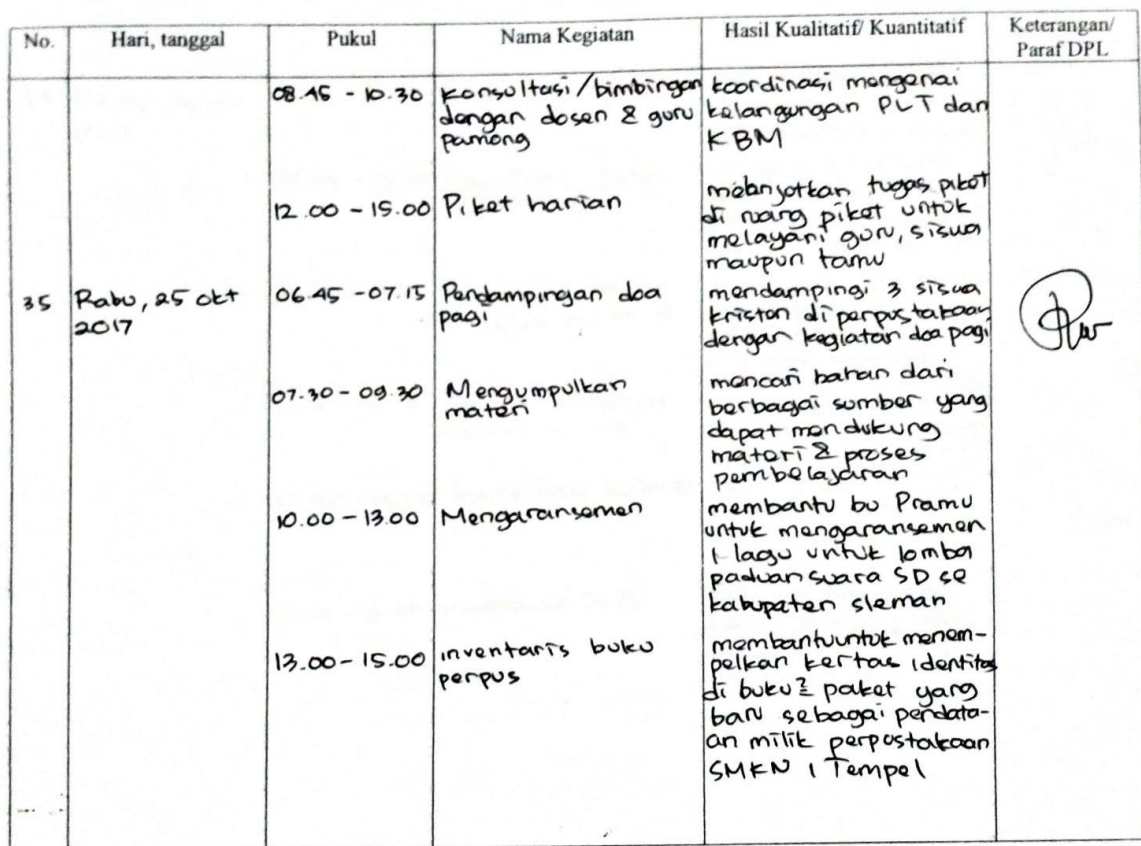 No. Hari, tanggal Pukul Nama Kegiatan Hasil Kualitatif/ Kuantitatif Keterangan/
Paraf DPL
08.45 - 10.30 konsultasi/bimbingan koordinasi mengenai
dengan dosen & guru kelangungan PLT dan
pamong KBM
12.00 - 15.00 Piket harian
melanjutkan tugas piket
di ruang piket untuk
melayani guru, siswa
maupun tamu
35 Rabu, 25 okt 06.45 - 07.15 Pendampingan doa mendampingi 3 siswa
2017 pagi kristen di perpustakaan
dengan kegiatan doa pagi
07.30 - 09.30 Mengumpulkan mencari bahan dari
materi berbagai sumber yang
dapat mendukung
materi & proses
pembelajaran
10.00 - 13.00 Mengaransemen membantu bu Pramu
untuk mengaransemen
1 lagu untuk lomba
paduan suara SD se
kabupaten sleman
13.00 - 15.00 inventaris buku membantu untuk menem-
perpus pelkan kertas identitas
di buku2 paket yang
baru sebagai pendata-
an milik perpustakaan
SMKN 1 Tempel